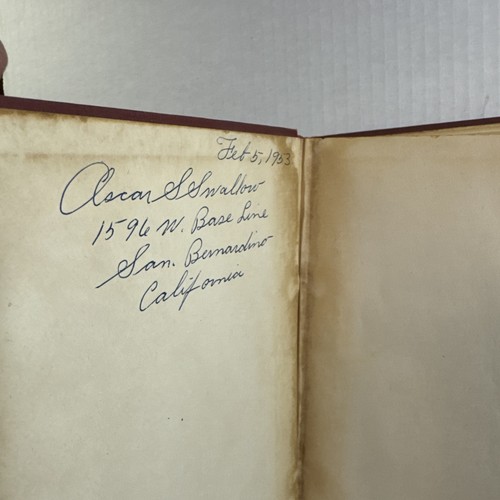 Feb 5, 1953
Oscar S Swallow
1596 W. Base Line
San. Bernardino
California